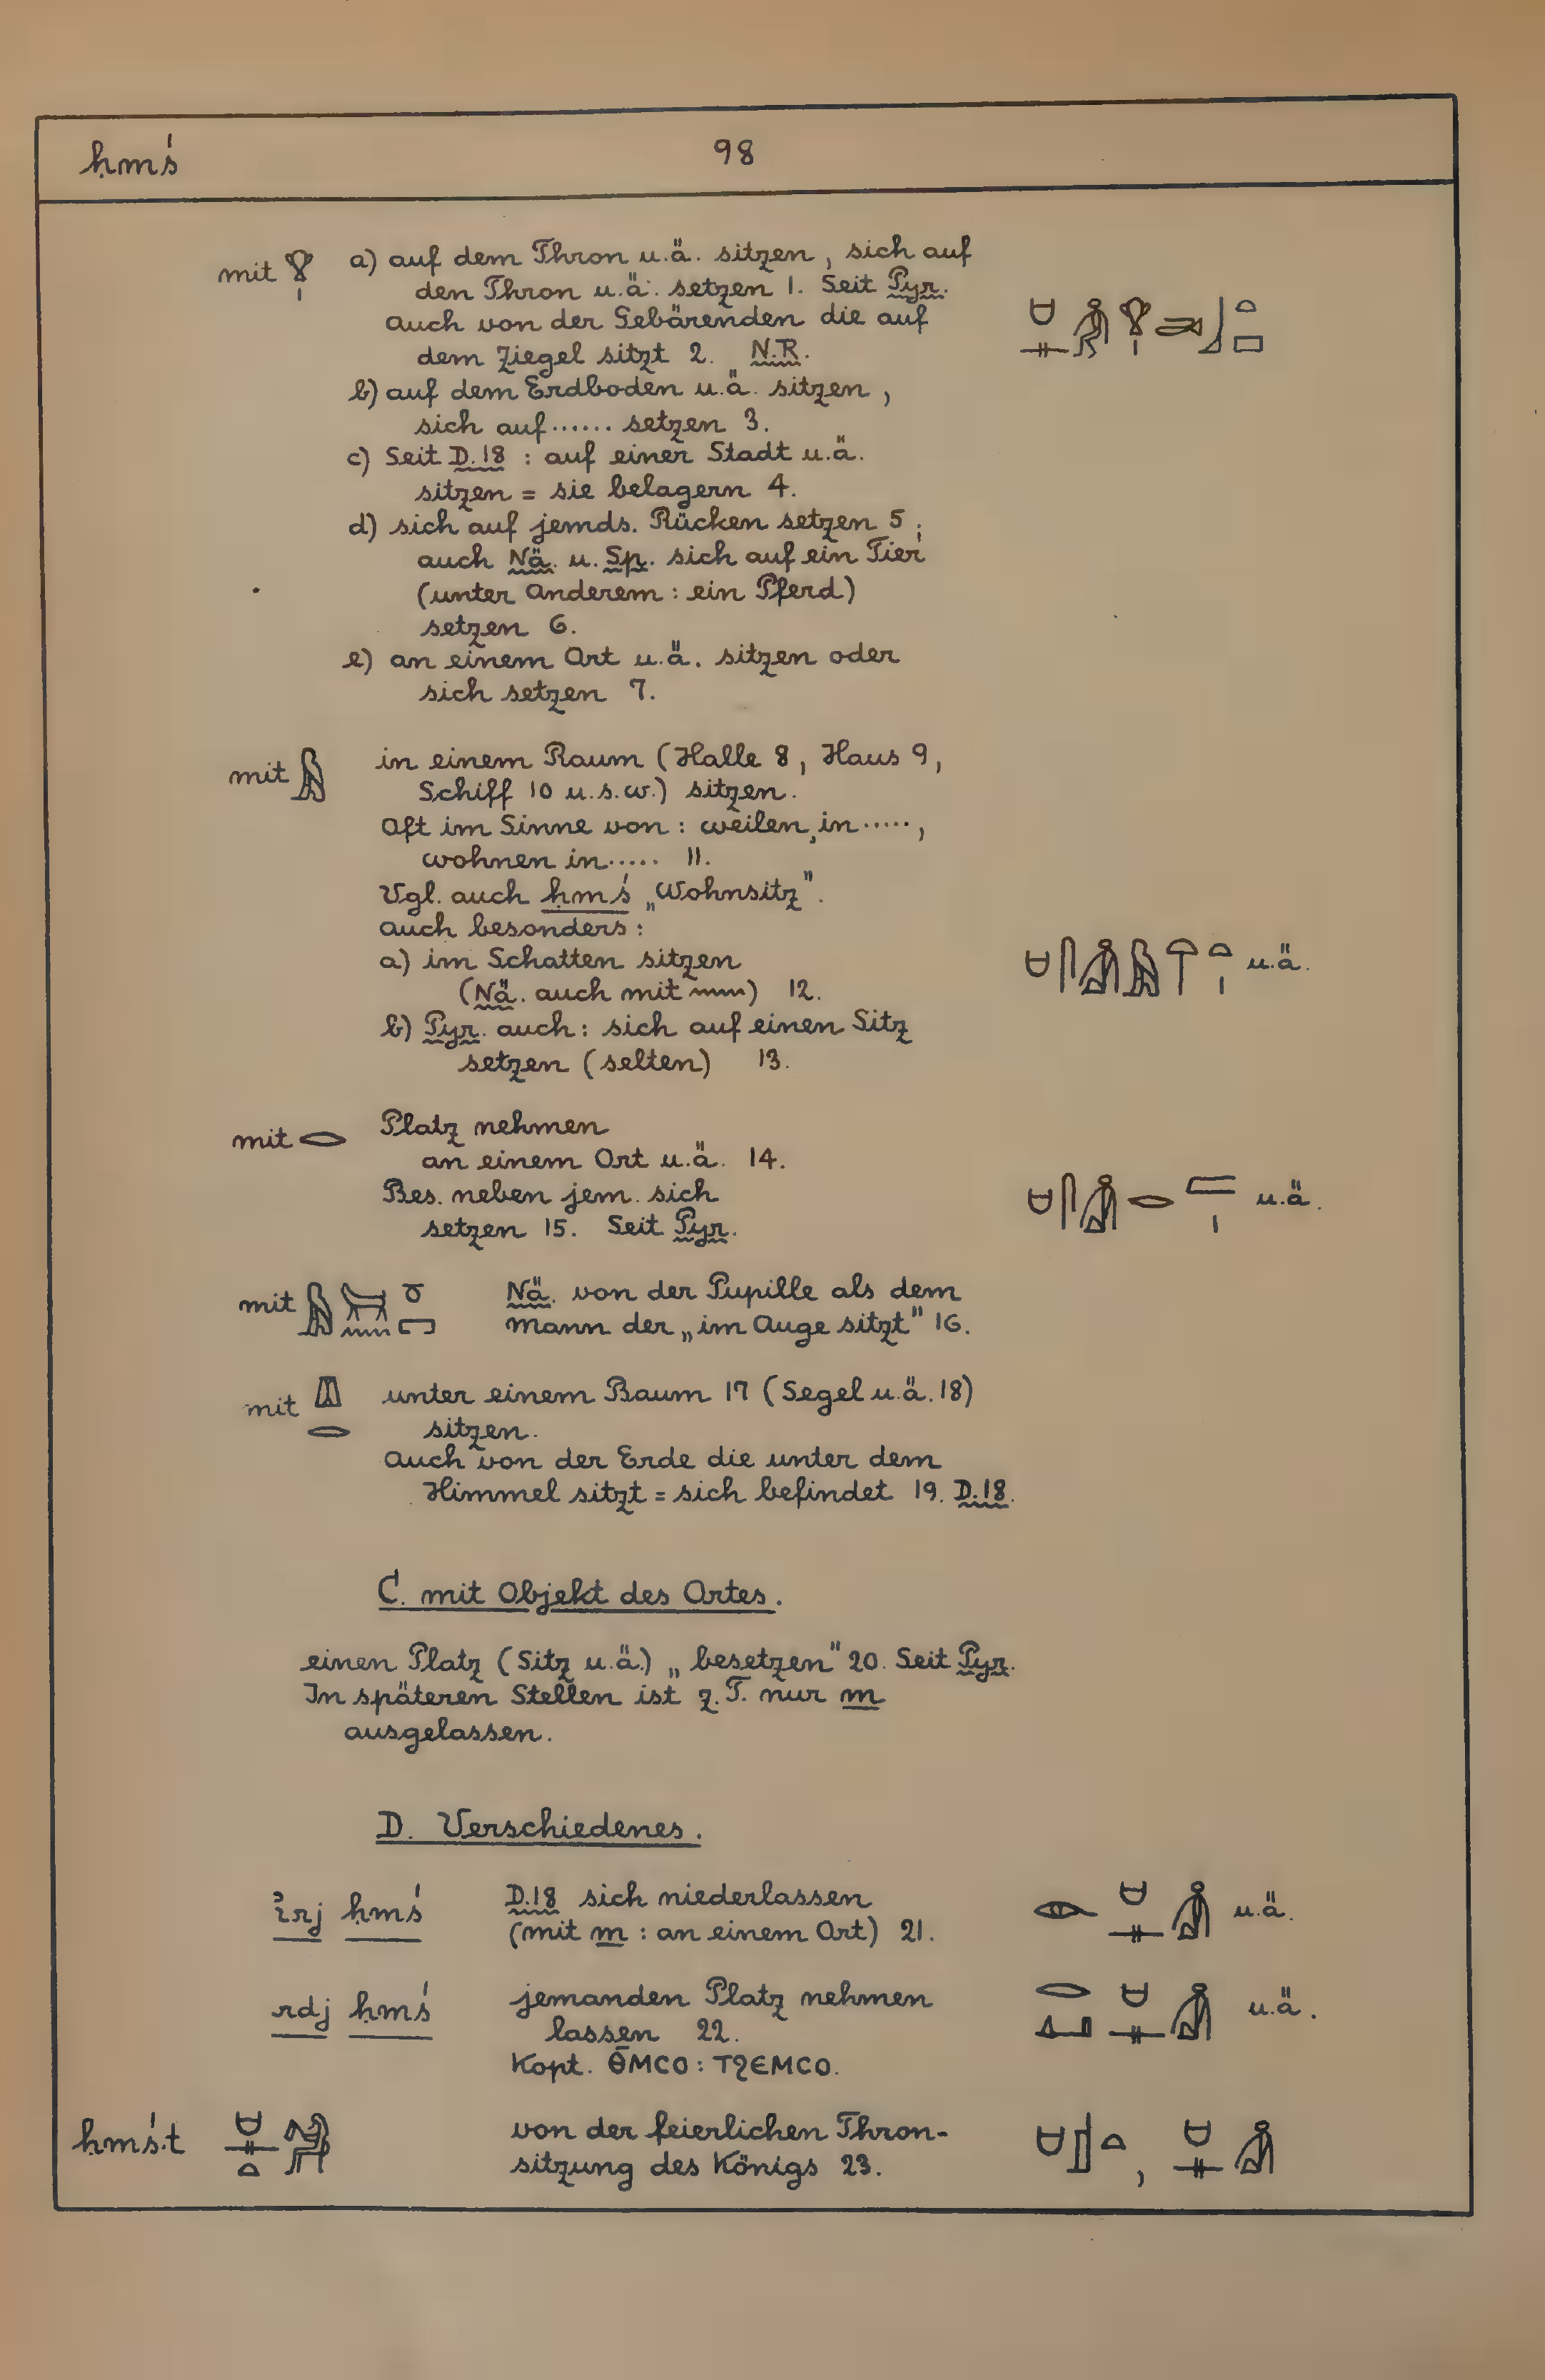 ḥmś 98
mit 𓁷𓏤 a) auf dem Thron u.ä. sitzen, sich auf
den Thron u.ä. setzen 1. Seit Pyr.
Auch von der Gebärenden die auf
dem Ziegel sitzt 2. N.R.
b) auf dem Erdboden u.ä. sitzen,
sich auf ...... setzen 3.
c) Seit D.18 : auf einer Stadt u.ä.
sitzen = sie belagern 4.
d) sich auf jemds. Rücken setzen 5;
auch Nä. u. Sp. sich auf ein Tier
(unter anderem : ein Pferd)
setzen 6.
e) an einem Ort u.ä. sitzen oder
sich setzen 7.
mit 𓅓 in einem Raum (Halle 8, Haus 9,
Schiff 10 u.s.w.) sitzen.
Oft im Sinne von : weilen in .....,
wohnen in ..... 11.
Vgl. auch ḥmś „Wohnsitz".
auch besonders :
a) im Schatten sitzen u.ä.
(Nä. auch mit 𓈖) 12.
b) Pyr. auch : sich auf einen Sitz
setzen (selten) 13.
mit 𓂋 Platz nehmen
an einem Ort u.ä. 14.
Bes. neben jem. sich u.ä.
setzen 15. Seit Pyr.
mit Nä. von der Pupille als dem
Mann der „im Auge sitzt" 16.
mit 𓌨𓂋 unter einem Baum 17 (Segel u.ä. 18)
sitzen.
Auch von der Erde die unter dem
Himmel sitzt = sich befindet 19. D.18.
C. mit Objekt des Ortes.
einen Platz (Sitz u.ä.) „besetzen" 20. Seit Pyr.
In späteren Stellen ist z.T. nur m
ausgelassen.
D. Verschiedenes.
ỉrj ḥmś D.18 sich niederlassen u.ä.
(mit m : an einem Ort) 21.
rdj ḥmś jemanden Platz nehmen u.ä.
lassen 22.
Kopt. ⲐⲘⲤⲞ : ⲦϨⲈⲘⲤⲞ.
ḥmś.t von der feierlichen Thron-
sitzung des Königs 23.